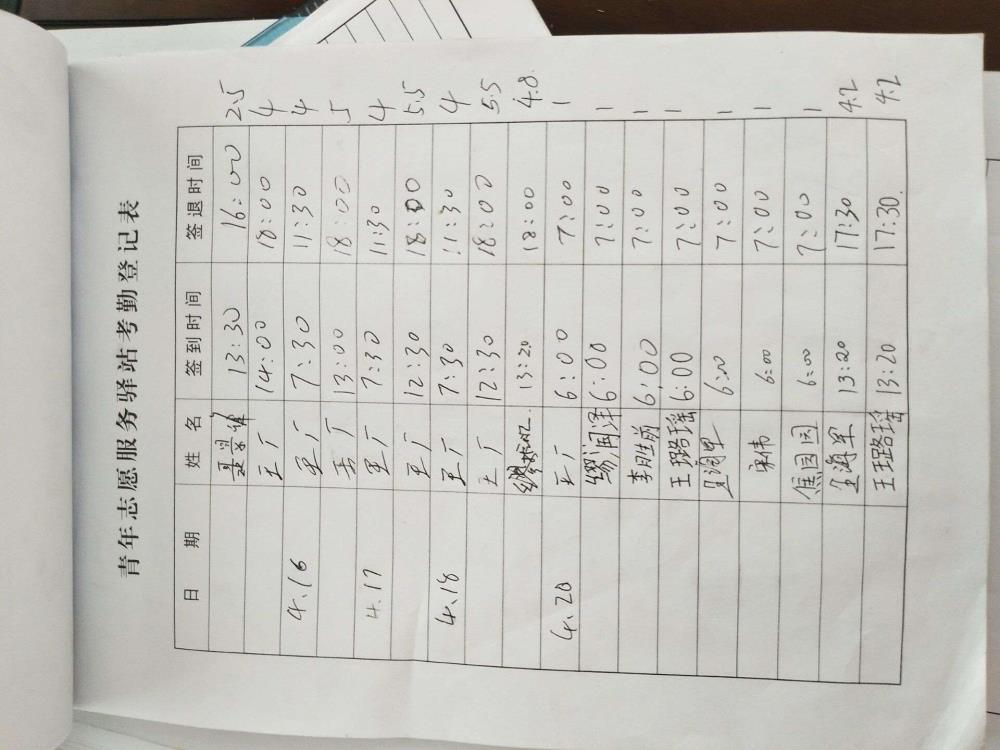 青年志愿服务驿站考勤登记表
日 期 姓 名 签到时间 签退时间
13:30 16:00 2.5
王广 14:00 18:00 4
4.16 王广 7:30 11:30 4
王广 13:00 18:00 5
4.17 王广 7:30 11:30 4
王广 12:30 18:00 5.5
4.18 王广 7:30 11:30 4
王广 12:30 18:00 5.5
13:20 18:00 4.8
4.20 王广 6:00 7:00 1
润泽 6:00 7:00 1
李胜前 6:00 7:00 1
王璐瑶 6:00 7:00 1
6:00 7:00 1
宋伟 6:00 7:00 1
焦园园 6:00 7:00 1
海军 13:20 17:30 4.2
王璐瑶 13:20 17:30. 4.2